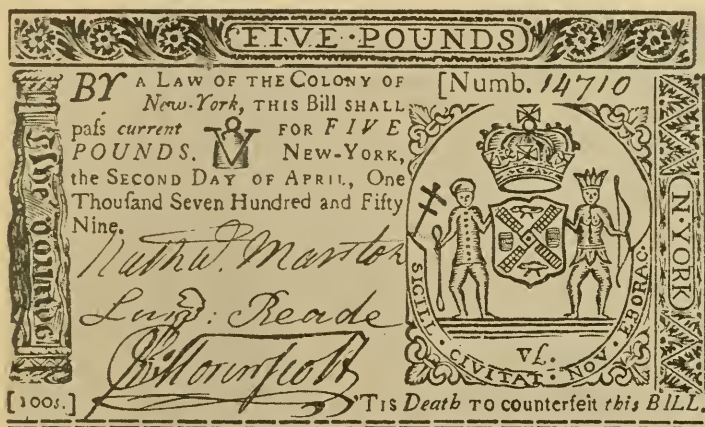 FIVE·POUNDS
BY A LAW OF THE COLONY OF
New-York, THIS Bill SHALL
paſs current FOR FIVE
POUNDS. NEW-YORK,
the SECOND DAY OF APRIL, One
Thouſand Seven Hundred and Fifty
Nine.
[Numb. 14710
Nathal. Marston
Reade
SIGILL. CIVITAT. NOV. EBORAC.
V£.
N·YORK
[100s.]
'TIS Death TO counterfeit this BILL.